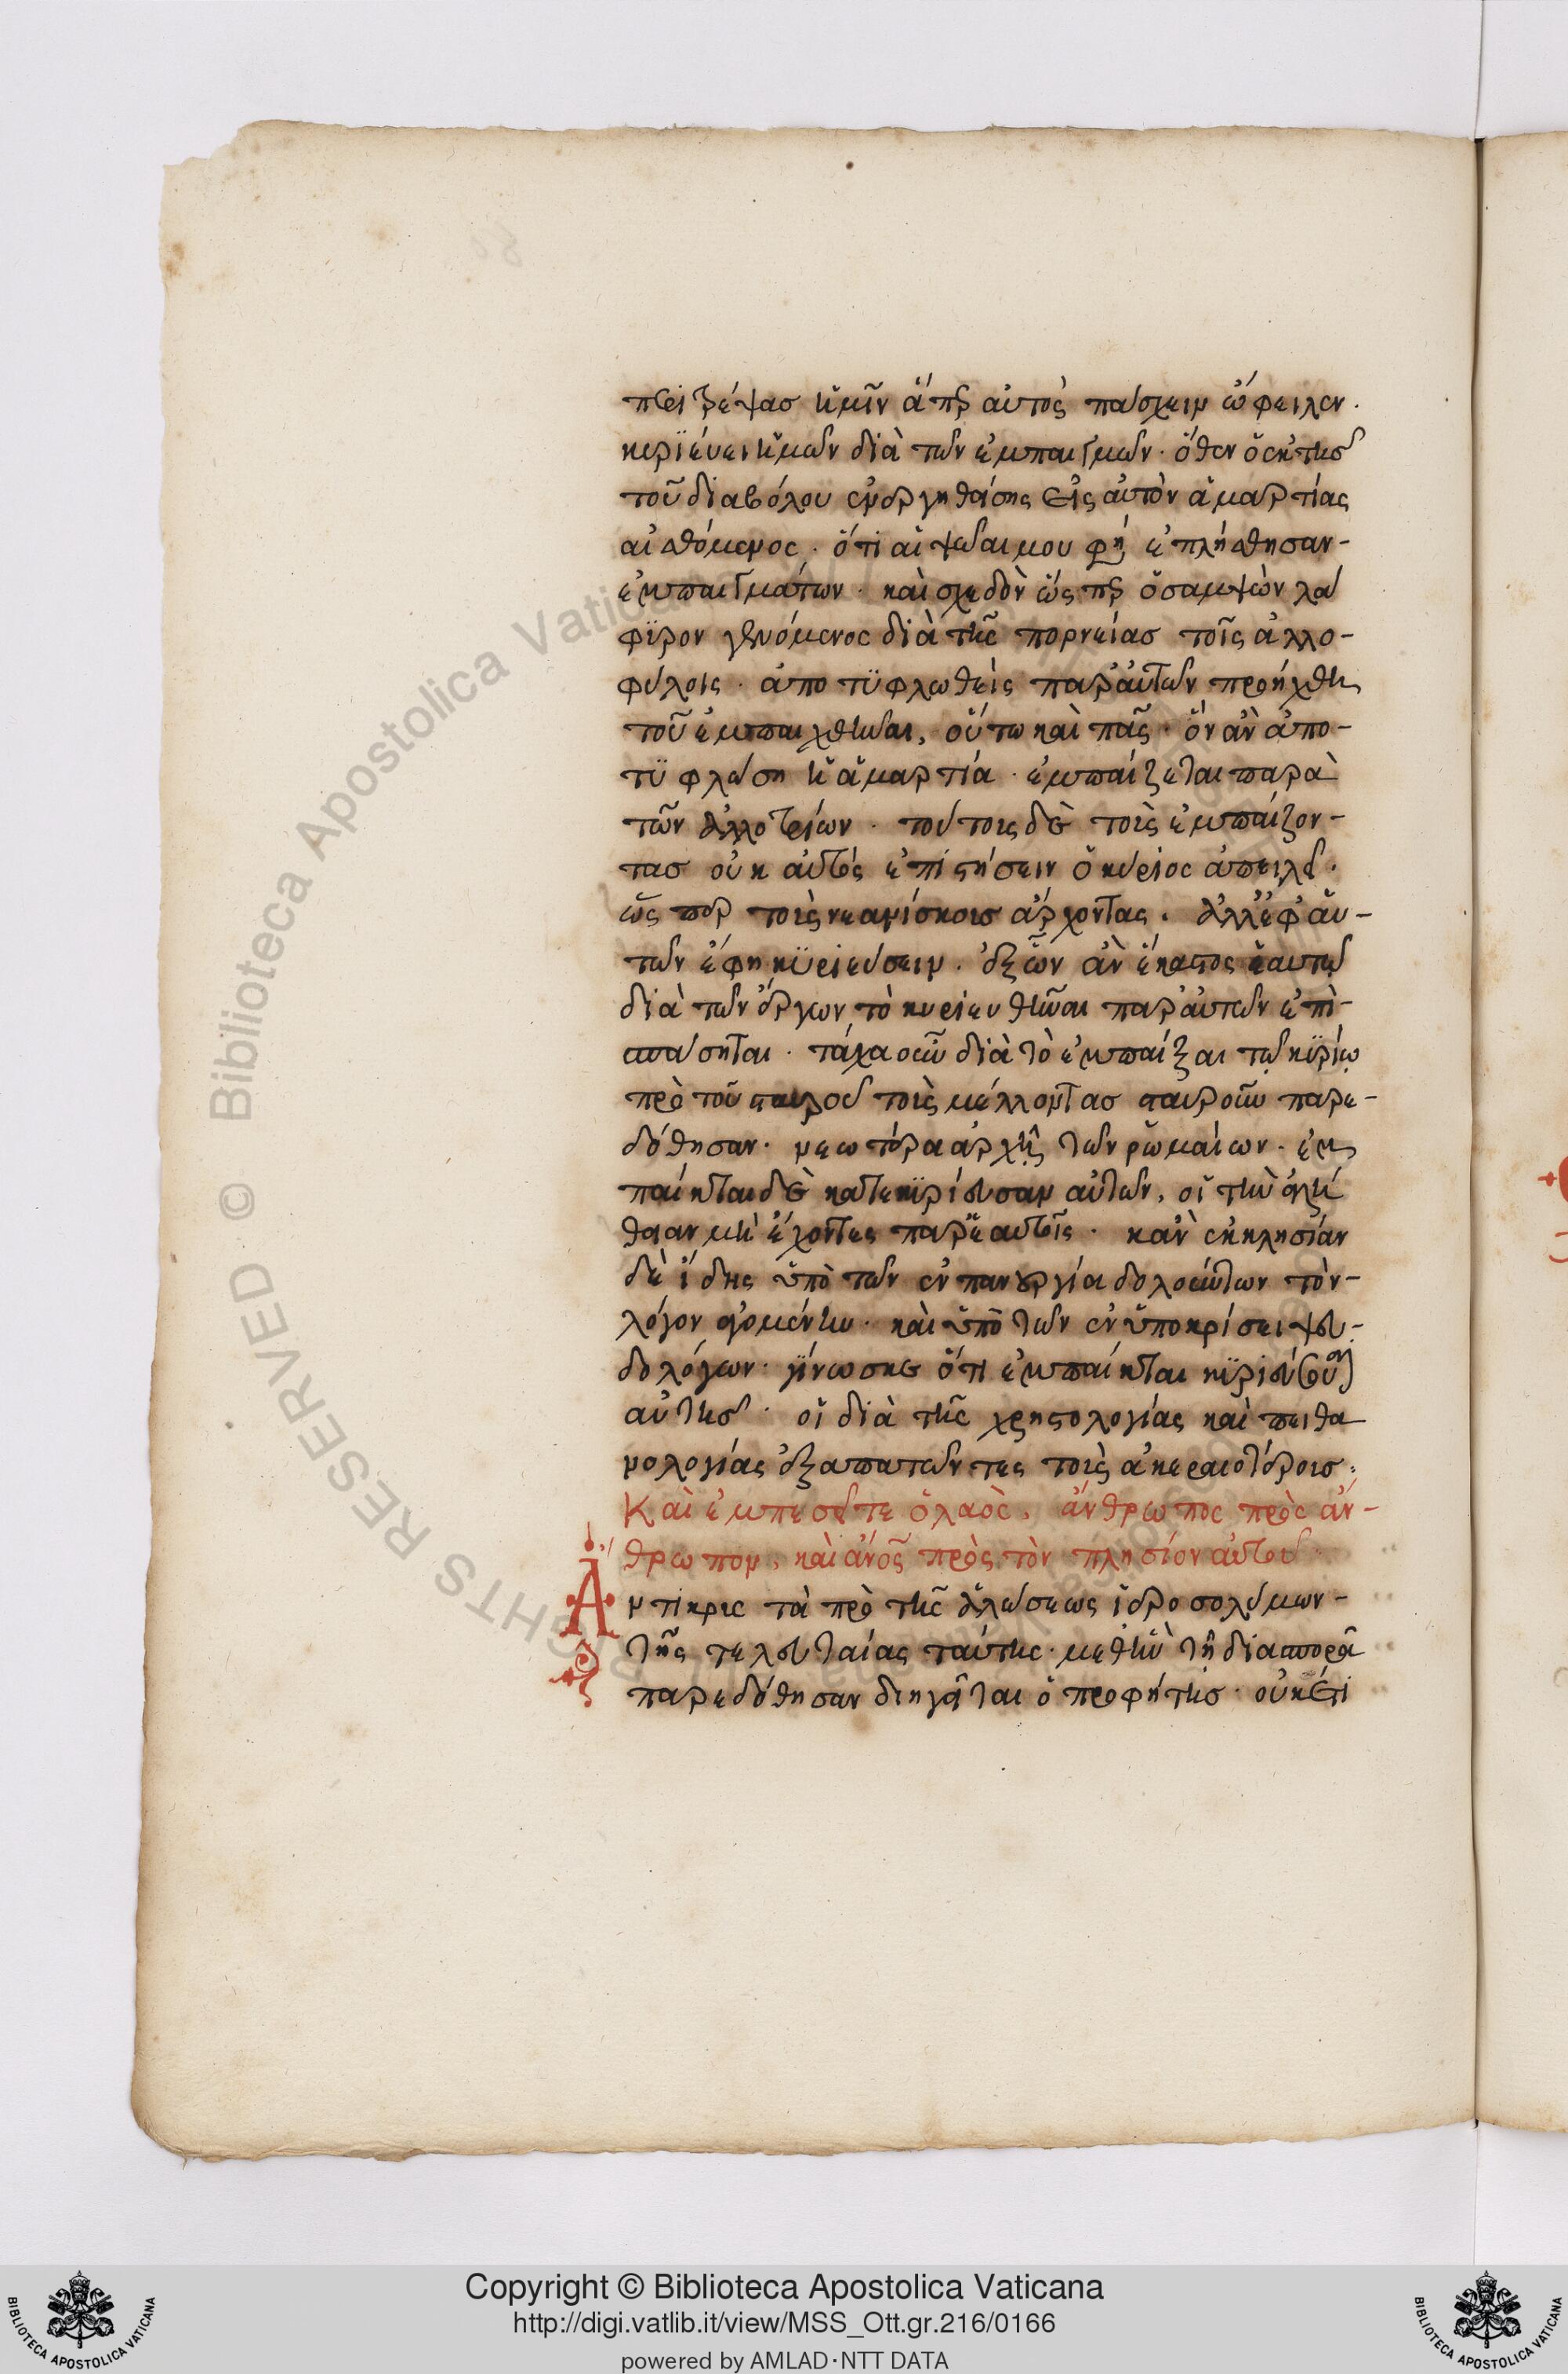 περιτρέψας ἡμῖν ἅπερ αὐτὸς πάσχειν ὤφειλεν.
κυριεύει ἡμῶν διὰ τῶν ἐμπαιγμῶν. ὅθεν ὁ ἐκ τῆς
τοῦ διαβόλου ἐνεργηθείσης εἰς αὐτὸν ἁμαρτίας
αἰσθόμενος. ὅτι αἱ ψύαι μου φησὶν ἐπλήσθησαν-
ἐμπαιγμάτων. καὶ σχεδὸν ὥσπερ ὁ σαμψὼν λά
φυρον γενόμενος διὰ τῆς πορνείας τοῖς ἀλλο-
φύλοις. ἀποτυφλωθεὶς παρ' αὐτῶν προήχθη
τοῦ ἐμπαιχθῆναι, οὕτω καὶ πᾶς. ὃν ἂν ἀπο-
τυφλώση ἡ ἁμαρτία. ἐμπαίζεται παρὰ
τῶν ἀλλοτρίων. τούτοις δὲ τοὺς ἐμπαίζον-
τας οὐκ αὐτὸς ἐπιστήσειν ὁ κύριος ἀπειλεῖ.
ὥσπερ τοὺς νεανίσκους ἄρχοντας. ἀλλ' ἐφ' αὑ-
τῶν ἔφη κυριεύσειν. ἐξ ὧν ἂν ἕκαστος ἑαυτῶ
διὰ τῶν ἔργων τὸ κυριευθῆναι παρ' αὐτῶν ἐπι-
σπάσηται. τάχα οὖν διὰ τὸ ἐμπαίξαι τῷ κυρίῳ
πρὸ τοῦ σταυροῦ τοὺς μέλλοντας σταυροῦν παρε-
δόθησαν. νεωτέρα ἀρχῇ τῶν ῥωμαίων. ἐμ
παῖκται δὲ κατεκυρίευσαν αὐτῶν, οἱ τὴν ἀλή
θειαν μὴ ἔχοντες παρ' ἑαυτοῖς. κἂν ἐκκλησίαν
δὲ ἴδης ὑπὸ τῶν ἐν πανουργία δολούντων τὸν-
λόγον ἀγομένην. καὶ ὑπὸ τῶν ἐν ὑποκρίσει ψευ-
δολόγων. γίνωσκε ὅτι ἐμπαῖκται κυριεύουσιν
αὐτῆς. οἱ διὰ τῆς χρηστολογίας καὶ πειθα
νολογίας ἐξαπατῶντες τοὺς ἀκεραιοτέρους:
Καὶ ἐμπεσεῖτε ὁ λαὸς, ἄνθρωπος πρὸς ἄν-
θρωπον, καὶ ἄνος πρὸς τὸν πλησίον αὐτοῦ.
Ἀντικρις τὰ πρὸ τῆς ἁλώσεως ἱεροσολύμων-
τῆς τελευταίας ταύτης. μεθ' ἣν τῇ διασπορᾶ
παρεδόθησαν διηγεῖται ὁ προφήτης. οὐκέτι
Copyright © Biblioteca Apostolica Vaticana
http://digi.vatlib.it/view/MSS_Ott.gr.216/0166
powered by AMLAD·NTT DATA